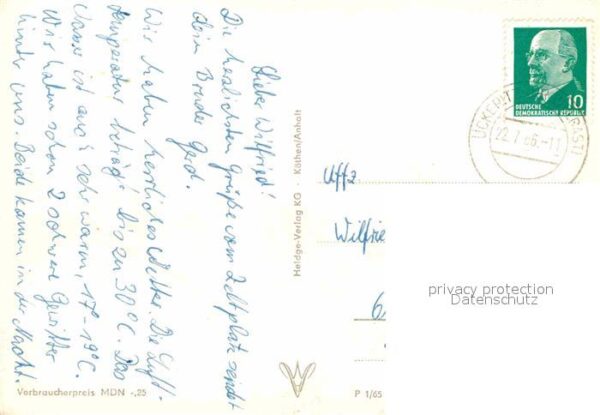 Liebe Wilfried!
Die herzlichsten Grüße vom Zeltplatz sendet
Dein Bruder Gerd.
Wir haben herrliches Wetter. Die Luft-
temperatur beträgt bis zu 30°C. Das
Wasser ist auch sehr warm, 17°-19°C.
Wir haben schon 2 schwere Gewitter
hinter uns. Beide kamen in der Nacht.
Verbraucherpreis MDN -,25
Heldge-Verlag KG · Köthen/Anhalt
P 1/65
10
DEUTSCHE
DEMOKRATISCHE REPUBLIK
22.7.66.-11
Uffz.
Wilfrie
6
privacy protection
Datenschutz